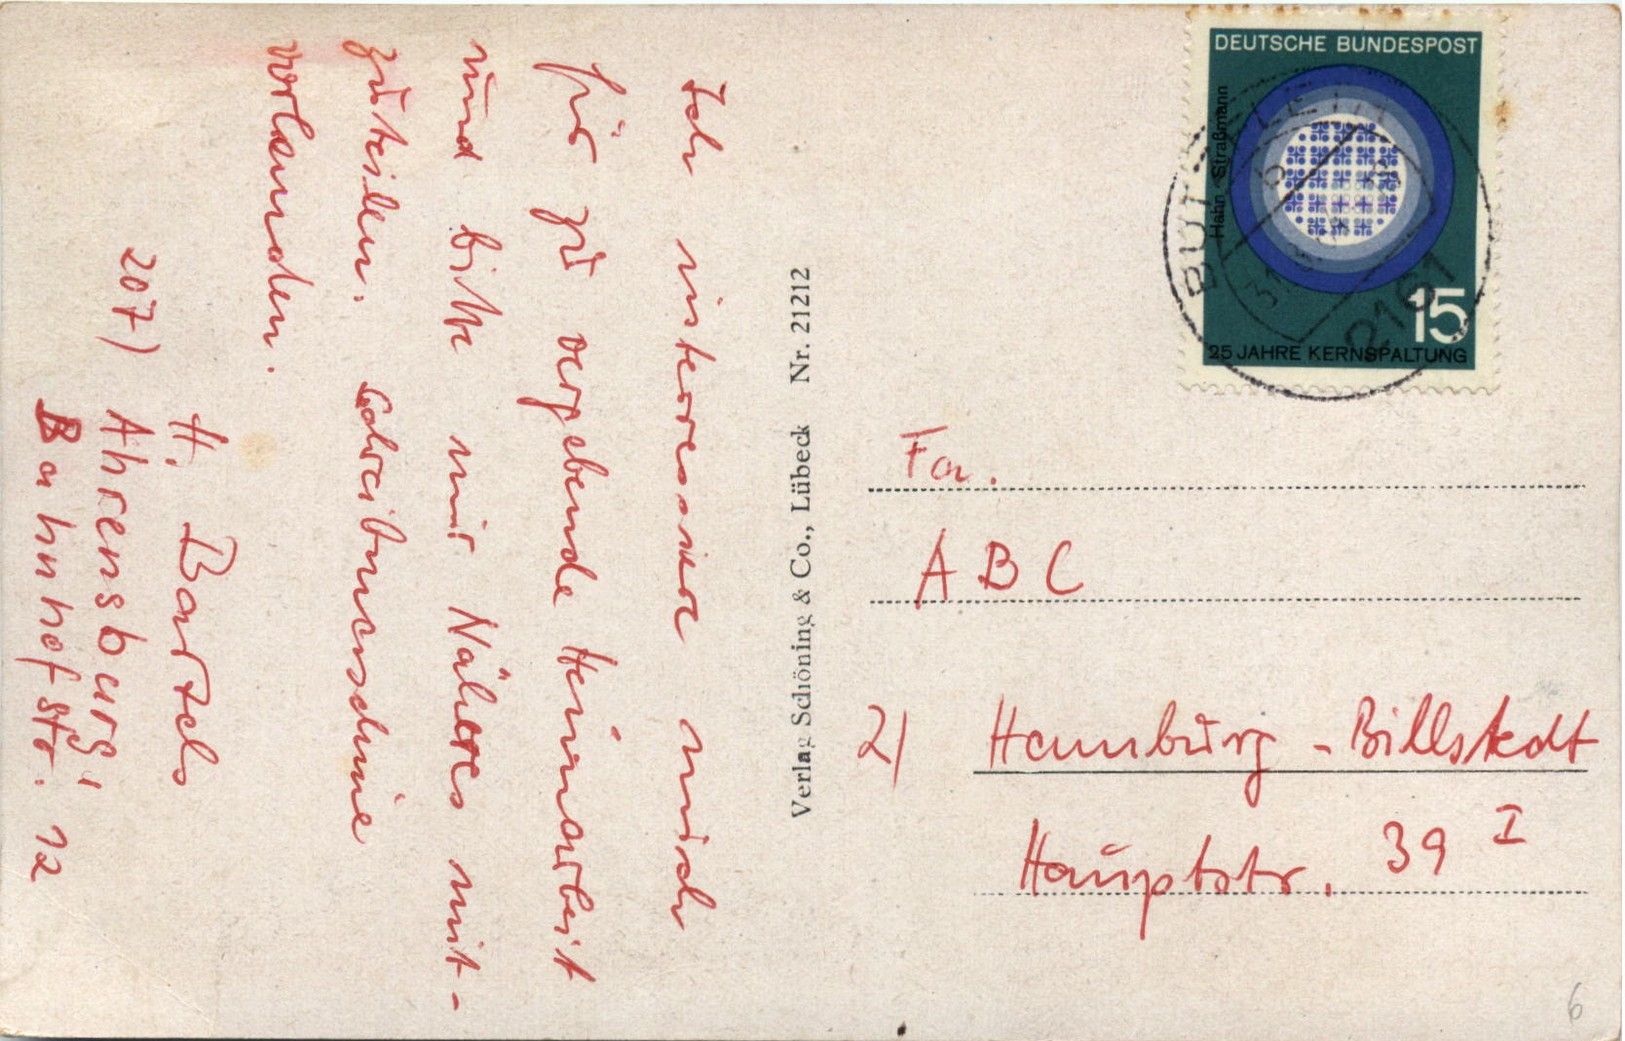 Ich interessiere mich
für zu vergebende Heimarbeit
und bitte mir Näheres mit-
zuteilen. Schreibmaschine
vorhanden.
H. Bartels
207) Ahrensburg
Bahnhofstr. 12
Verlag Schöning & Co., Lübeck Nr. 21212
DEUTSCHE BUNDESPOST
Hahn · Straßmann
15
25 JAHRE KERNSPALTUNG
2161
Fa.
ABC
2) Hamburg - Billstedt
Hauptstr. 39 I
6